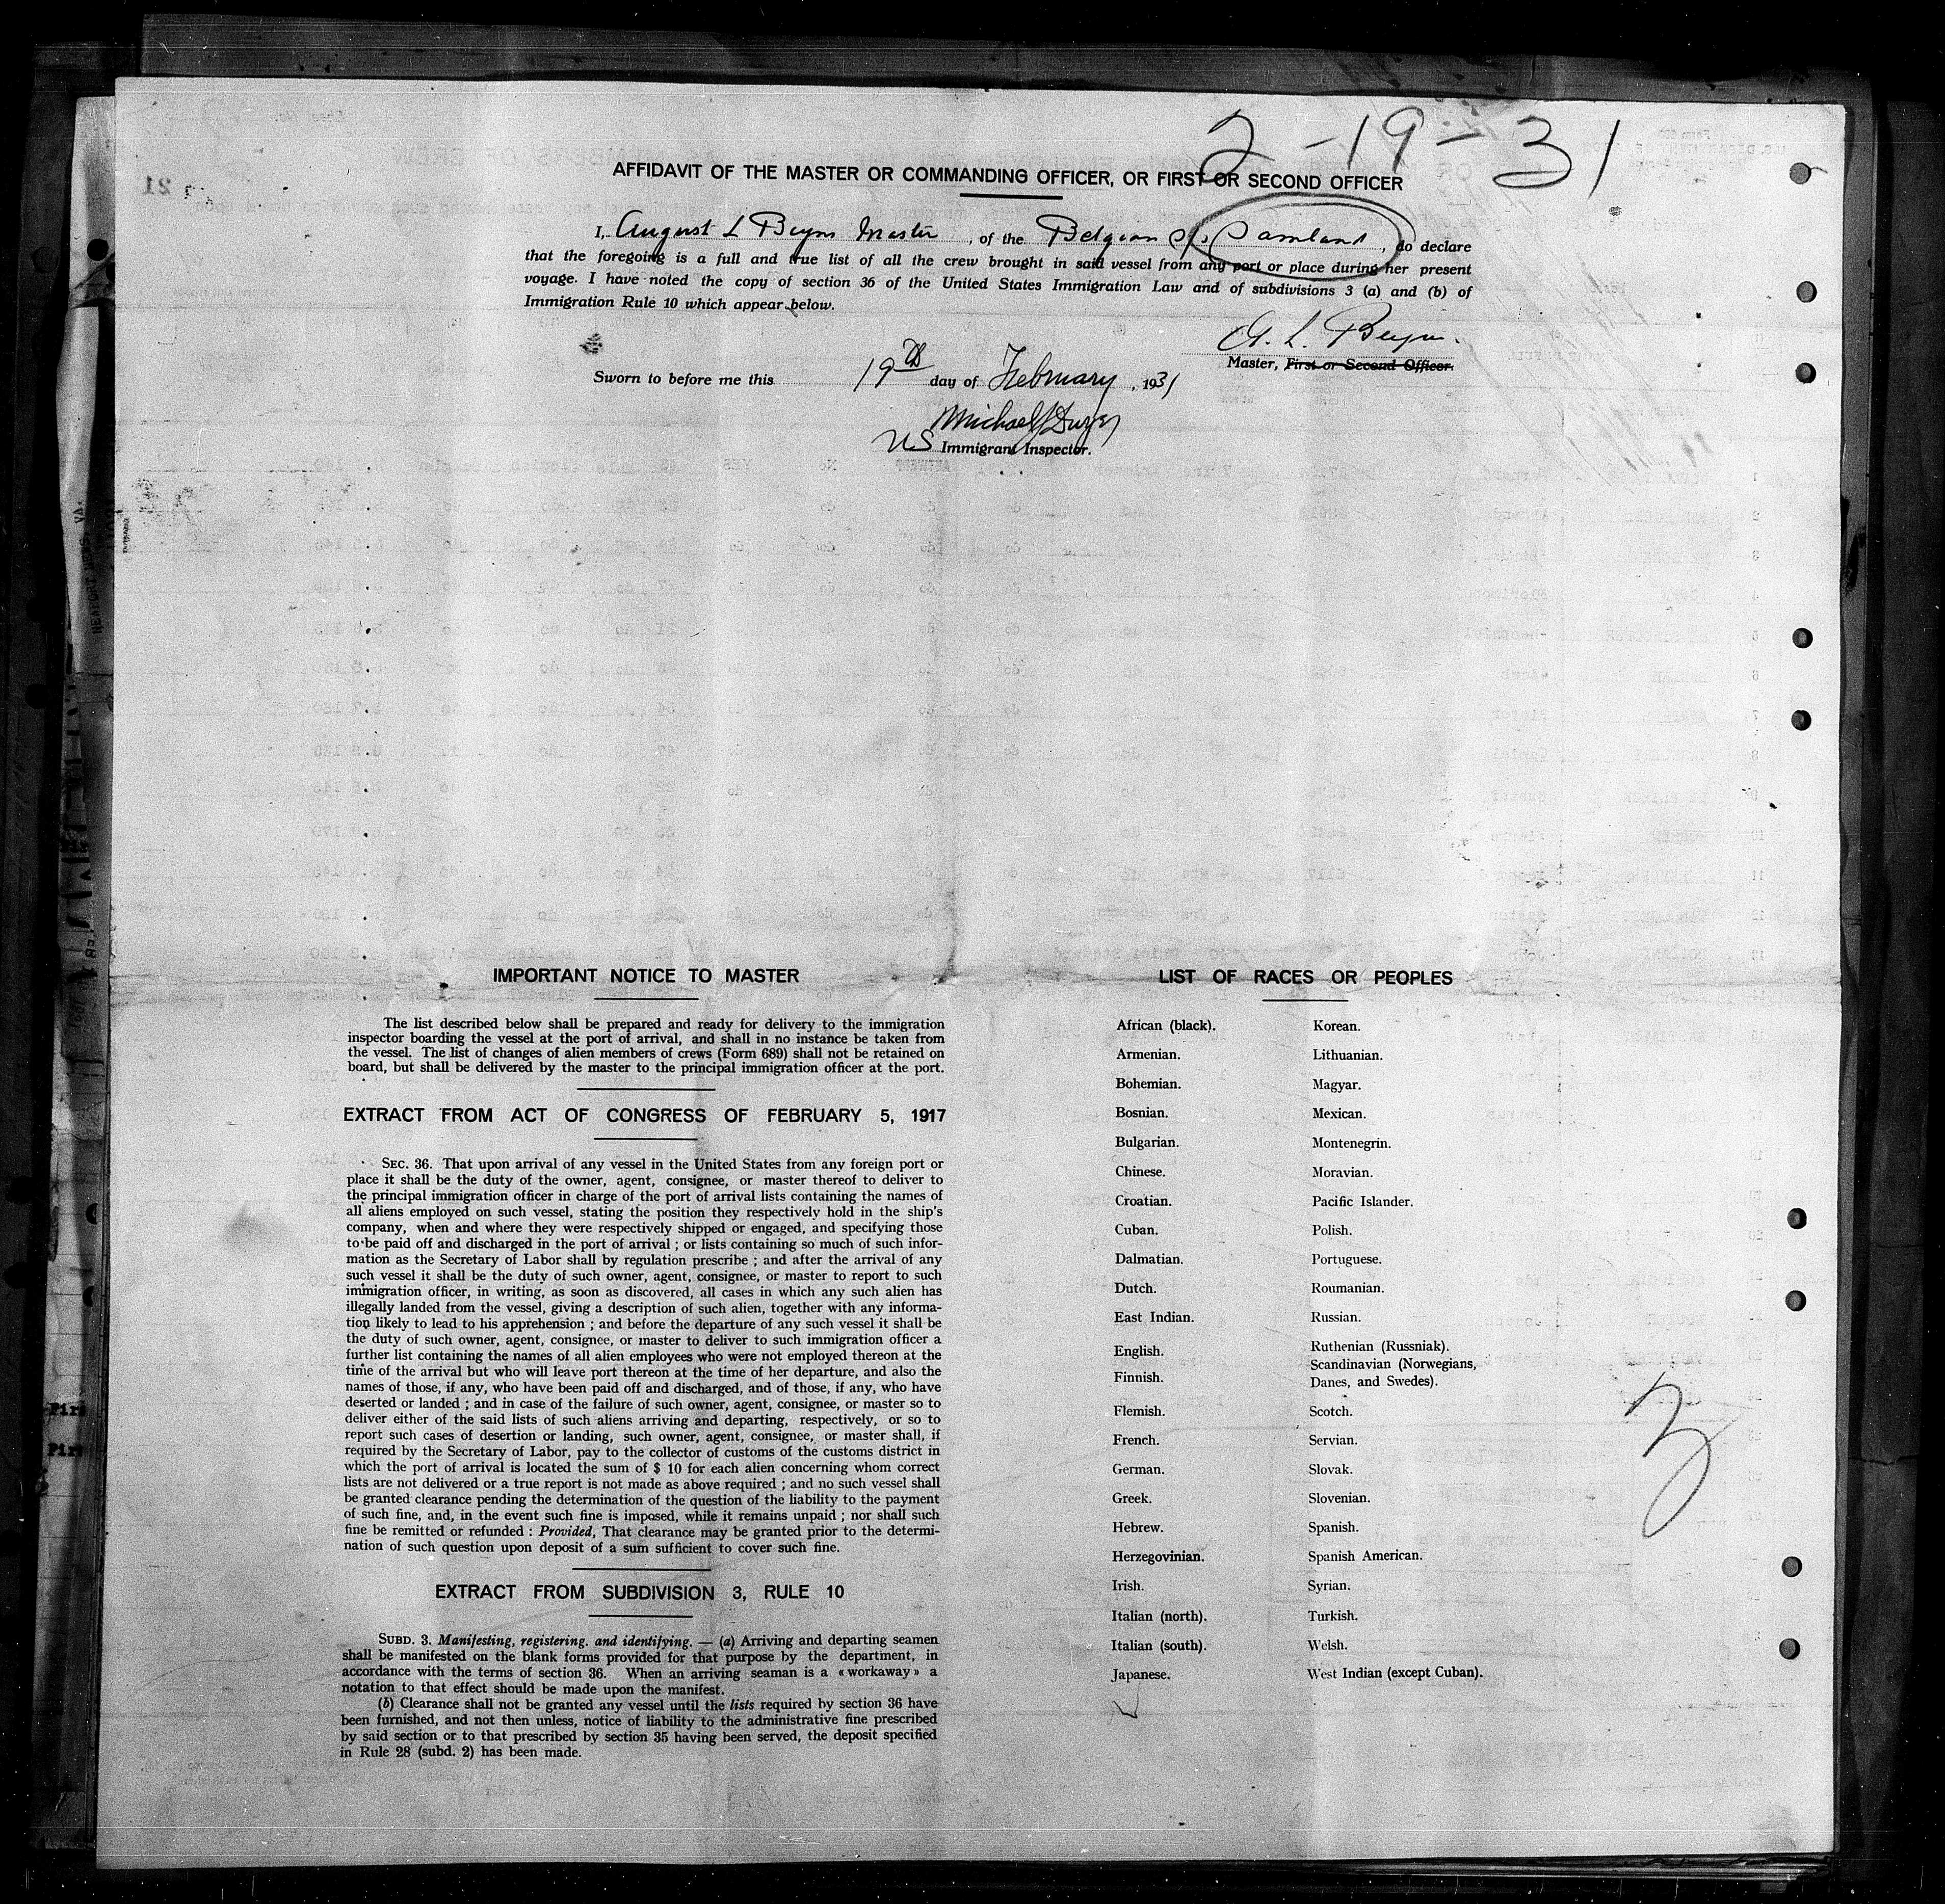 2-19-31
AFFIDAVIT OF THE MASTER OR COMMANDING OFFICER, OR FIRST OR SECOND OFFICER
I, August L Beyns Master, of the Belgian SS Samland, do declare
that the foregoing is a full and true list of all the crew brought in said vessel from any port or place during her present
voyage. I have noted the copy of section 36 of the United States Immigration Law and of subdivisions 3 (a) and (b) of
Immigration Rule 10 which appear below.
A. L. Beyns.
Master, First or Second Officer.
Sworn to before me this 19th day of February, 1931
Michael J
US Immigrant Inspector.
IMPORTANT NOTICE TO MASTER
The list described below shall be prepared and ready for delivery to the immigration
inspector boarding the vessel at the port of arrival, and shall in no instance be taken from
the vessel. The list of changes of alien members of crews (Form 689) shall not be retained on
board, but shall be delivered by the master to the principal immigration officer at the port.
EXTRACT FROM ACT OF CONGRESS OF FEBRUARY 5, 1917
SEC. 36. That upon arrival of any vessel in the United States from any foreign port or
place it shall be the duty of the owner, agent, consignee, or master thereof to deliver to
the principal immigration officer in charge of the port of arrival lists containing the names of
all aliens employed on such vessel, stating the position they respectively hold in the ship's
company, when and where they were respectively shipped or engaged, and specifying those
to be paid off and discharged in the port of arrival ; or lists containing so much of such infor-
mation as the Secretary of Labor shall by regulation prescribe ; and after the arrival of any
such vessel it shall be the duty of such owner, agent, consignee, or master to report to such
immigration officer, in writing, as soon as discovered, all cases in which any such alien has
illegally landed from the vessel, giving a description of such alien, together with any informa-
tion likely to lead to his apprehension ; and before the departure of any such vessel it shall be
the duty of such owner, agent, consignee, or master to deliver to such immigration officer a
further list containing the names of all alien employees who were not employed thereon at the
time of the arrival but who will leave port thereon at the time of her departure, and also the
names of those, if any, who have been paid off and discharged, and of those, if any, who have
deserted or landed ; and in case of the failure of such owner, agent, consignee, or master so to
deliver either of the said lists of such aliens arriving and departing, respectively, or so to
report such cases of desertion or landing, such owner, agent, consignee, or master shall, if
required by the Secretary of Labor, pay to the collector of customs of the customs district in
which the port of arrival is located the sum of $ 10 for each alien concerning whom correct
lists are not delivered or a true report is not made as above required ; and no such vessel shall
be granted clearance pending the determination of the question of the liability to the payment
of such fine, and, in the event such fine is imposed, while it remains unpaid ; nor shall such
fine be remitted or refunded : Provided, That clearance may be granted prior to the determi-
nation of such question upon deposit of a sum sufficient to cover such fine.
EXTRACT FROM SUBDIVISION 3, RULE 10
SUBD. 3. Manifesting, registering. and identifying. — (a) Arriving and departing seamen
shall be manifested on the blank forms provided for that purpose by the department, in
accordance with the terms of section 36. When an arriving seaman is a «workaway» a
notation to that effect should be made upon the manifest.
(b) Clearance shall not be granted any vessel until the lists required by section 36 have
been furnished, and not then unless, notice of liability to the administrative fine prescribed
by said section or to that prescribed by section 35 having been served, the deposit specified
in Rule 28 (subd. 2) has been made.
LIST OF RACES OR PEOPLES
African (black).
Armenian.
Bohemian.
Bosnian.
Bulgarian.
Chinese.
Croatian.
Cuban.
Dalmatian.
Dutch.
East Indian.
English.
Finnish.
Flemish.
French.
German.
Greek.
Hebrew.
Herzegovinian.
Irish.
Italian (north).
Italian (south).
Japanese.
Korean.
Lithuanian.
Magyar.
Mexican.
Montenegrin.
Moravian.
Pacific Islander.
Polish.
Portuguese.
Roumanian.
Russian.
Ruthenian (Russniak).
Scandinavian (Norwegians,
Danes, and Swedes).
Scotch.
Servian.
Slovak.
Slovenian.
Spanish.
Spanish American.
Syrian.
Turkish.
Welsh.
West Indian (except Cuban).
3